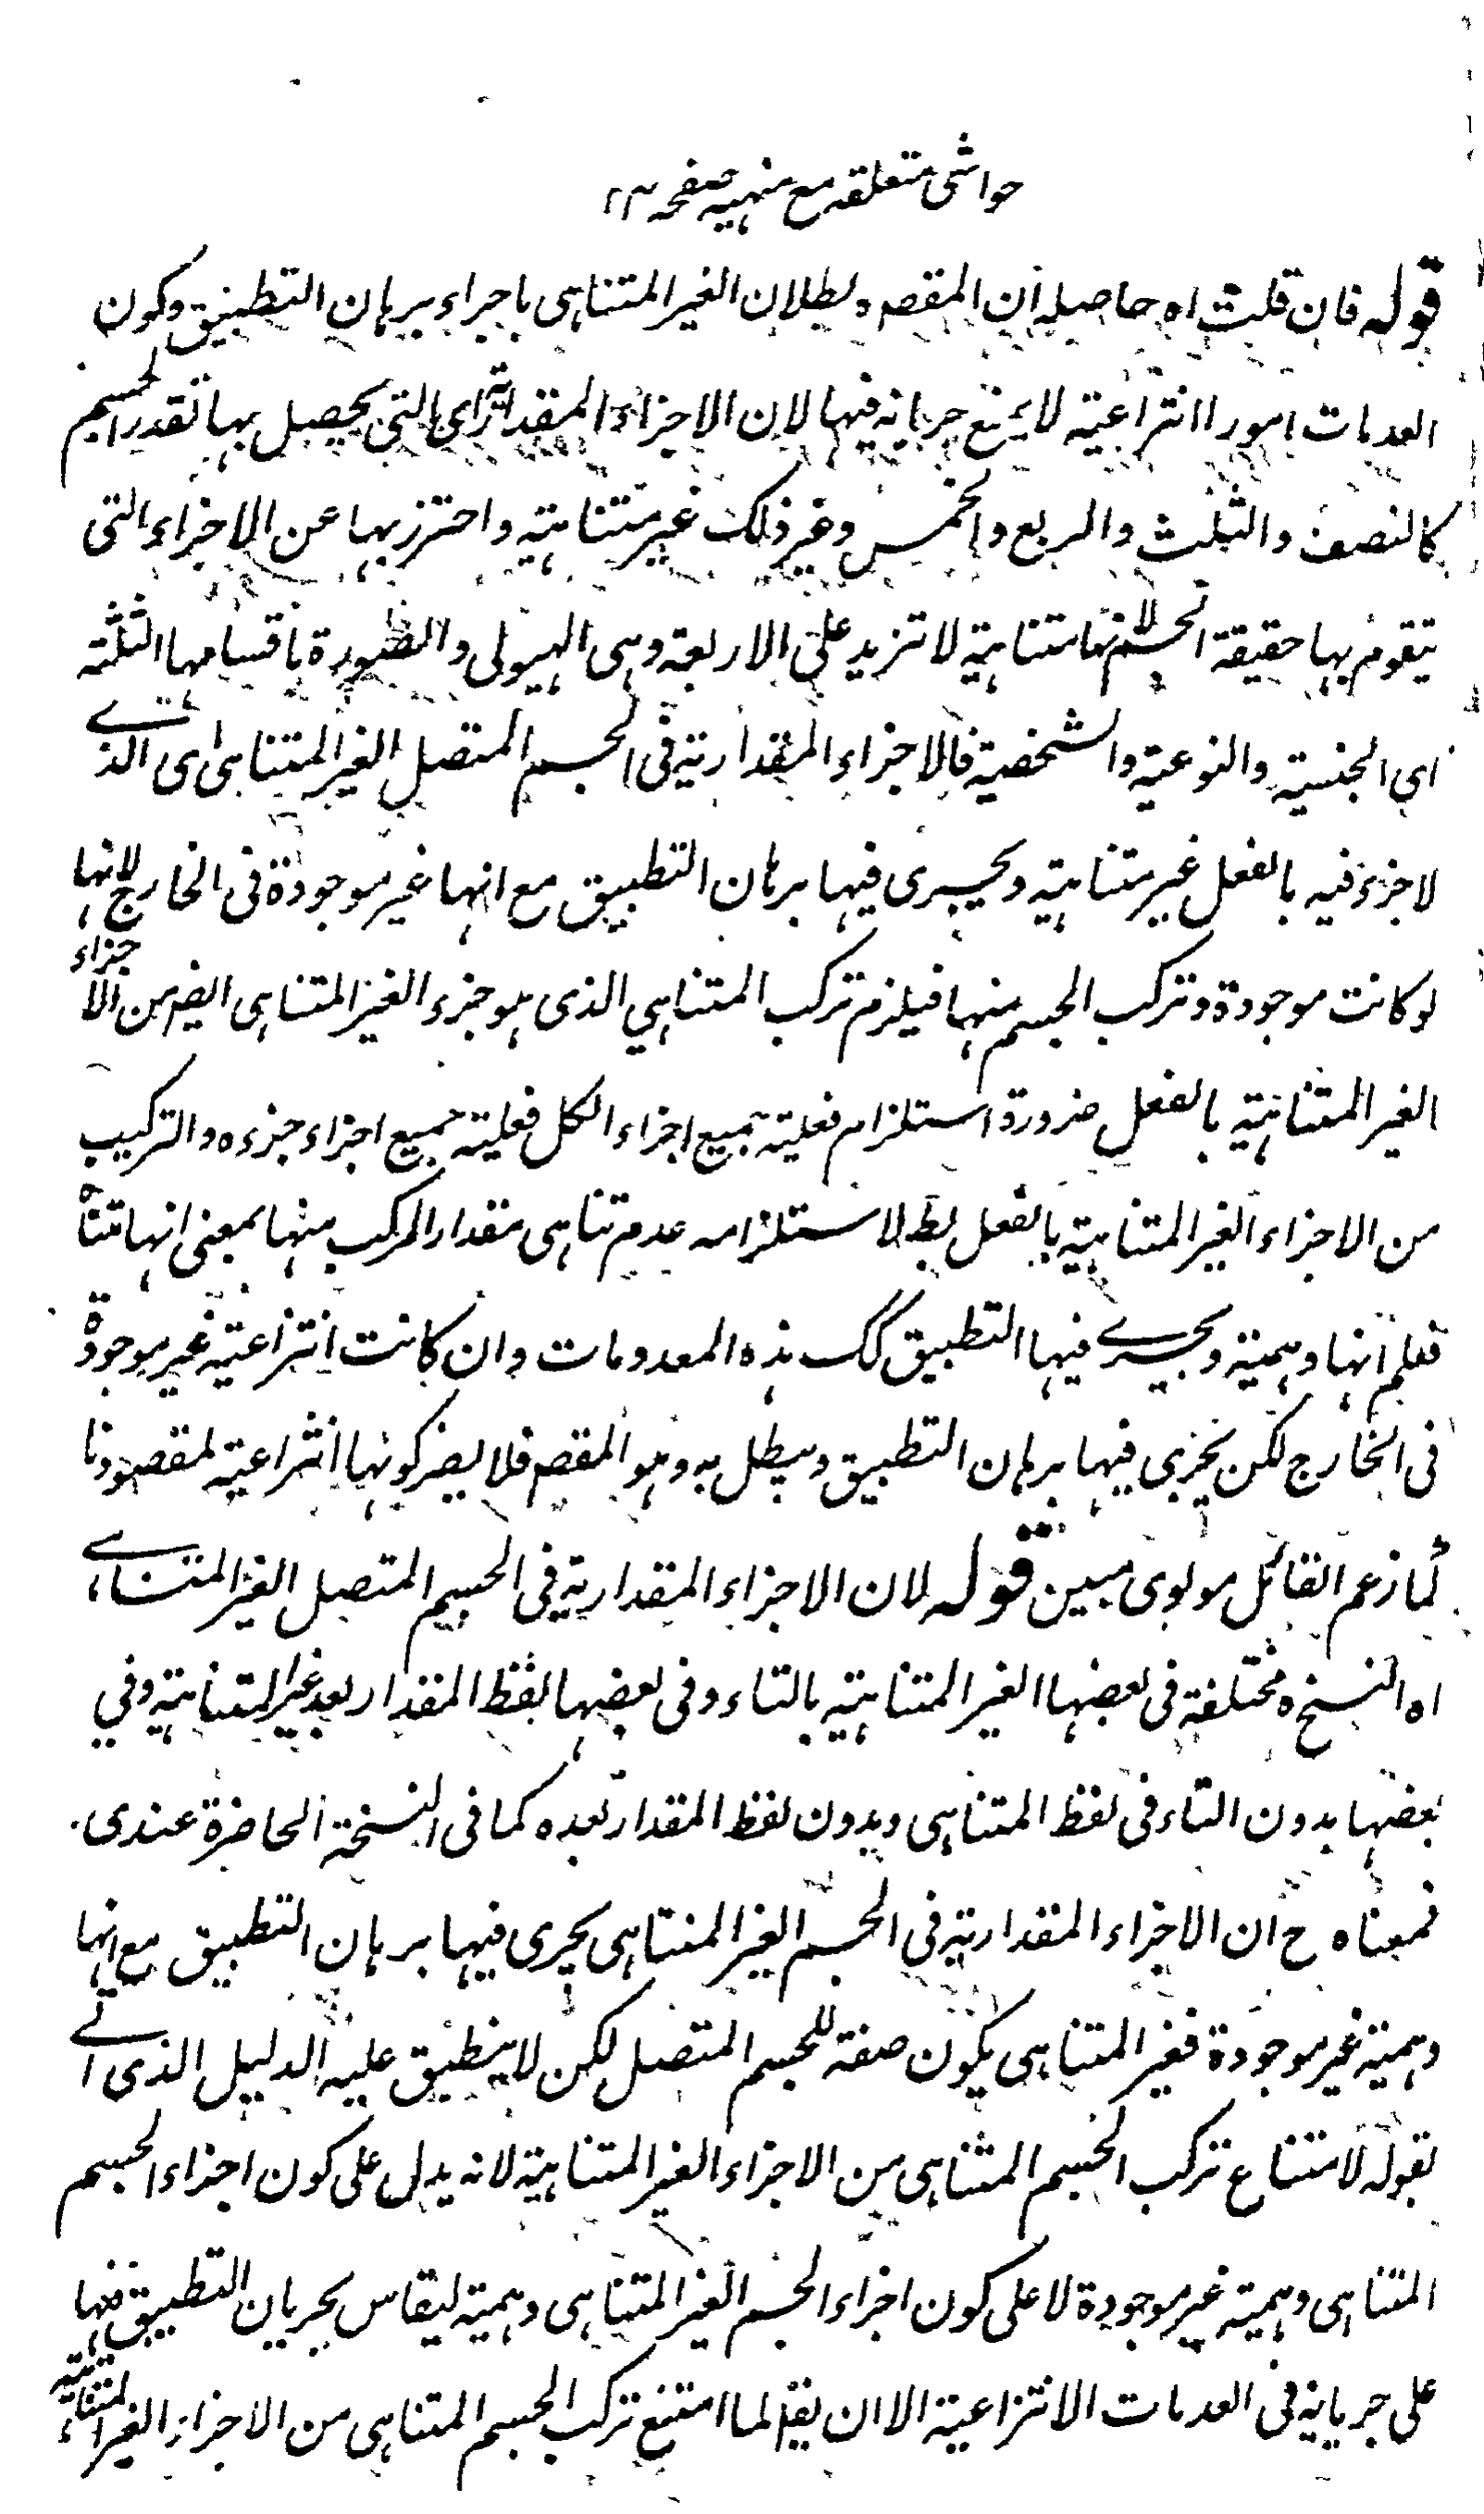 حواشى متعلقه مع منهيه صفحه ٢٣
قوله فان قلت اه حاصله ان المقصود بطلان الغير المتناهى باجراء برهان التطبيق وكون
العدمات امورا انتزاعية لا يمنع جريانه فيها لان الاجزاء المقدارية اى التى يحصل بها تقدر الجسم
كالنصف والثلث والربع والخمس وغير ذلك غير متناهية واحترز بها عن الاجزاء التى
يتقوم بها حقيقة الجسم لانها متناهية لا تزيد على الاربعة وهى الهيولى والصورة باقسامها الثلثة
اى الجنسية والنوعية والشخصية فالاجزاء المقدارية فى الجسم المتصل الغير المتناهى اى الذى
لا جزء فيه بالفعل غير متناهية ويجرى فيها برهان التطبيق مع انها غير موجودة فى الخارج لانها
لو كانت موجودة وتركب الجسم منها فيلزم تركب المتناهي الذى هو جزء الغير المتناهى ايضا من الاجزاء
الغير المتناهية بالفعل ضرورة استلزام فعلية جميع اجزاء الكل فعلية جميع اجزاء جزءه والتركيب
من الاجزاء الغير المتناهية بالفعل بط لاستلزامه عدم تناهى مقدار المركب منها بمعنى انها تتنا
فعلم انها وهمية ويجرى فيها التطبيق كك هذه المعدومات وان كانت انتزاعية غير موجودة
فى الخارج لكن يجرى فيها برهان التطبيق ويبطل به وهو المقصم فلا يضر كونها انتزاعية لمقصودنا
كما زعم القائل مولوى مبين قوله لان الاجزاء المقدارية فى الجسم المتصل الغير المتناهى
اه النسخ مختلفة فى بعضها الغير المتناهية بالتاء وفى بعضها لفظ المقدار بعد غير المتناهية وفي
بعضها بدون التاء فى لفظ المتناهى وبدون لفظ المقدار بعده كما فى النسخة الحاضرة عندى
فمعناه ح ان الاجزاء المقدارية فى الجسم الغير المتناهى يجرى فيها برهان التطبيق مع انها
وهمية غير موجودة فغير المتناهى يكون صفة للجسم المتصل لكن لا ينطبق عليه الدليل الذى اتى
بقوله لامتناع تركب الجسم المتناهى من الاجزاء الغير المتناهية لانه يدل على كون اجزاء الجسم
المتناهى وهمية غير موجودة لا على كون اجزاء الجسم الغير المتناهى وهمية ليقاس بجريان التطبيق فيها
على جريانه فى العدمات الانتزاعية الا ان يقم لما امتنع تركب الجسم المتناهى من الاجزاء الغير المتناهية